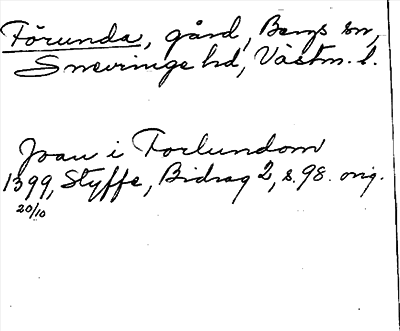 Förunda, gård, Bergs sn,
Snevringe hd, Västm. l.
Joan i Forlundom
1399, Styffe, Bidrag 2, s. 98. orig.
20/10